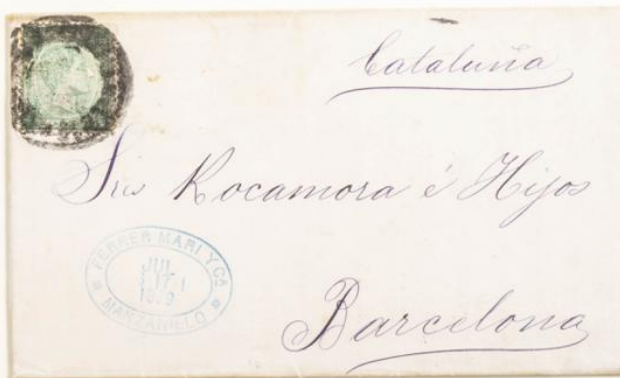 Cataluña
Sres Rocamora é Hijos
FERRER MARI Y CA
JUL
1879
MANZANILLO
Barcelona